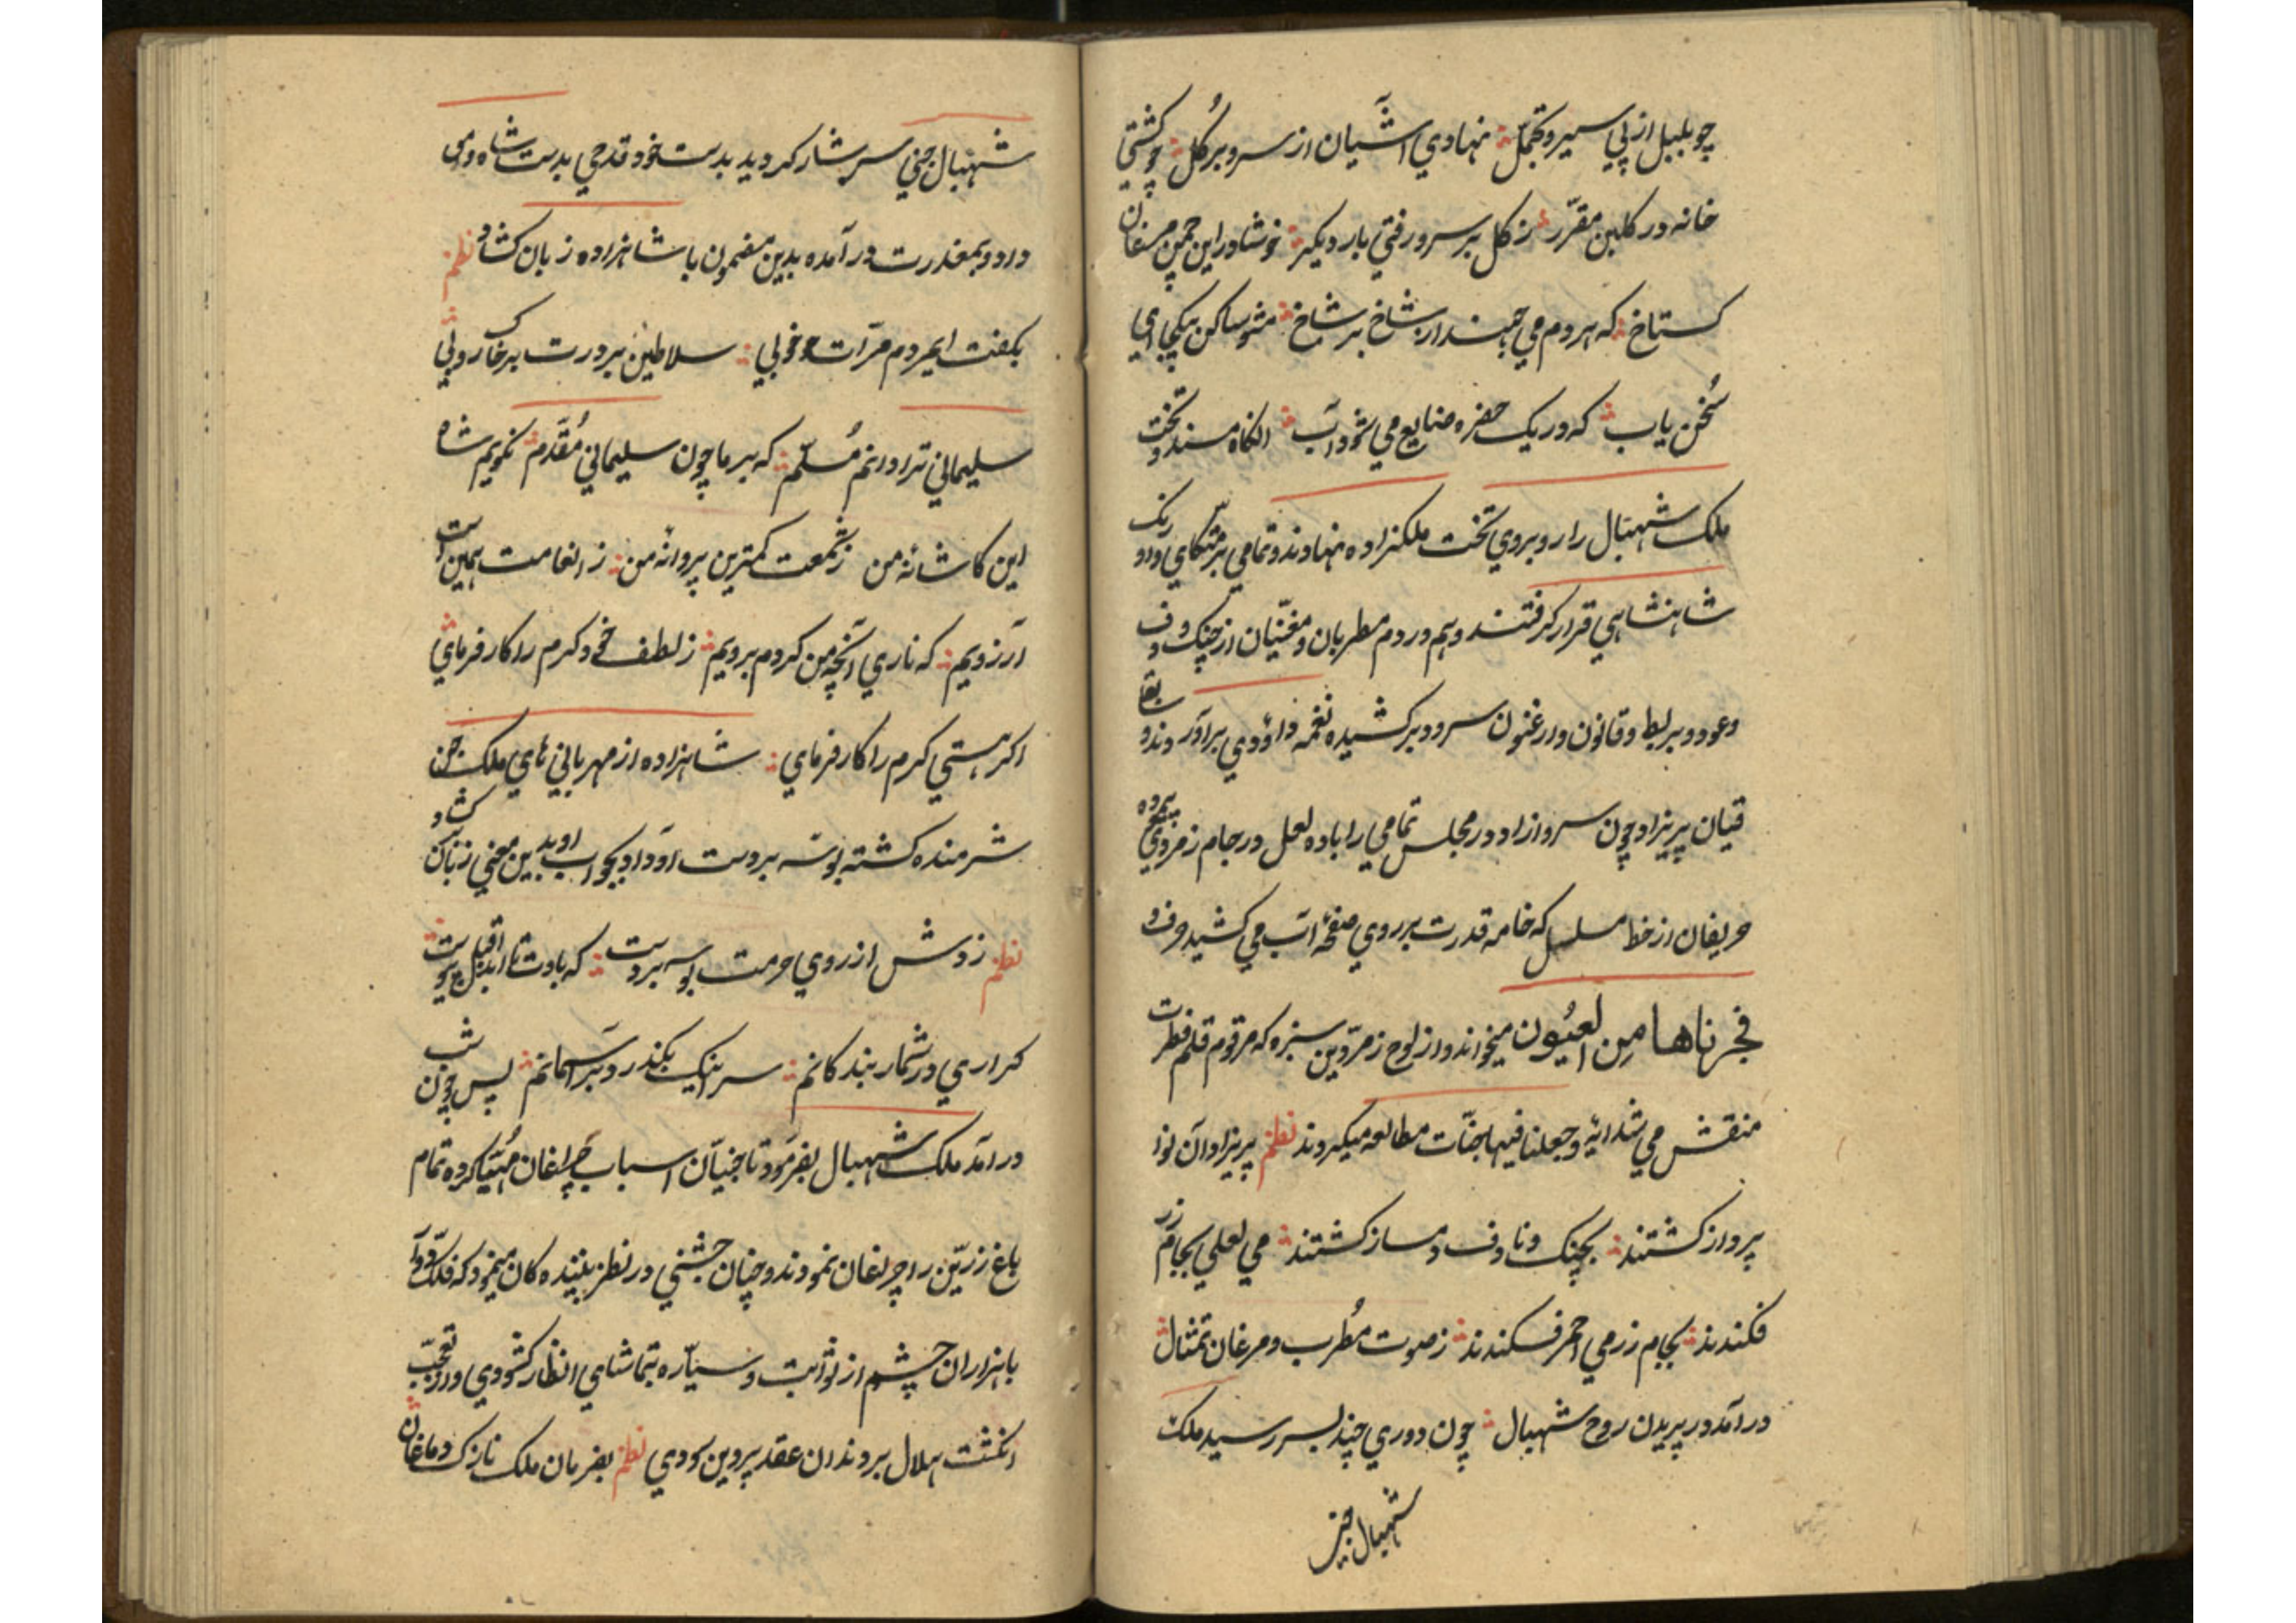 چو بلبل از پی سیر و تجمّل نهادی آشیان از سرو بر گُل چو گشتی
خانه در گلبن مقرّر ز گل بر سرو رفتی بار دیگر خوشا در این چمن مرغان
گستاخ که هر دم می جهند از شاخ بر شاخ مشو ساکن بیکجا ای
سُخن یاب که در یک حفره ضایع می شود آب انگاه مسند و تخت
ملک شهبال را روبروی تخت ملکزاده نهادند و تمامی بر متّکای اورنگ
شاهنشاهی قرار گرفتند و هم در دم مطربان و مغنّیان از چنگ و دف
و عود و بربط و قانون و ارغنون سرود برکشیده نغمه داؤدی برآوردند و سا
قیان پریزاد چون سرو ازاد در مجلس تمامی را باده لعل در جام زمردی پیموده
حریفان از خط مسلسل که خامه قدرت بر روی صفحه آب می کشید حرف و
فجرناها مِن العیُون میخواندند و از لوح زمرّدین سبزه که مرقوم قلم فطرت
منقش می شد ائیه وجعلنا فیها جنّات مطالعه میکردند نظم پریزادان نوا
پرداز گشتند بچنگ و نا و دف دمساز گشتند می لعلی بجام زر
فکندند بجام زر می احمر فکندند ز صوت مُطرب و مرغان تمثال
درآمد در پریدن روح شهبال چون دوری چند بسر رسید ملک
شهبال جنی
شهبال جنی سرشار گردید بدست خود قدحی بدست شاه و می
داد و بمعذرت درآمده بدین مضمون با شاهزاده زبان کشاد نظم
بگفت ای مردم مرّات خوبی سلاطین بر درت بر خاک روبی
سلیمانی ترا دانم مُسلّم که بر ما چون سلیمانی مُقدّم نکویم شاه
این کاشانهٔ من ز شمعت کمترین پروانهٔ من ز انعامت همین است
آرزویم که ناری آنچه من کردم برویم ز لطف خود کرم را کار فرمای
اگر هستی کرم را کار فرمای شاهزاده از مهربانی های ملک جن
شرمنده گشته بوسه بر دست او داد و بجواب او بدین معنی زبان کشاد
نظم زدش از روی حرمت بوسه بر دست که بادت تا ابد اقبال پیوست
گر آری در شمار بندگانم سر اینک بگذرد بر آسمانم پس چون شب
درآمد ملک شهبال بفرمود تا جنیّان اسباب چراغان مُهیّا کرده تمام
باغ زرّین را چراغان نمودند و چنان جشنی در نظر بیننده کان مینمود که فلک دوّار
با هزاران چشم از ثوابت و سیّاره بتماشای انظار کشودی و از تعجّب
انگشت هلال بر دندان عقد پروین سودی نظم بفرمان ملک نازک دماغان